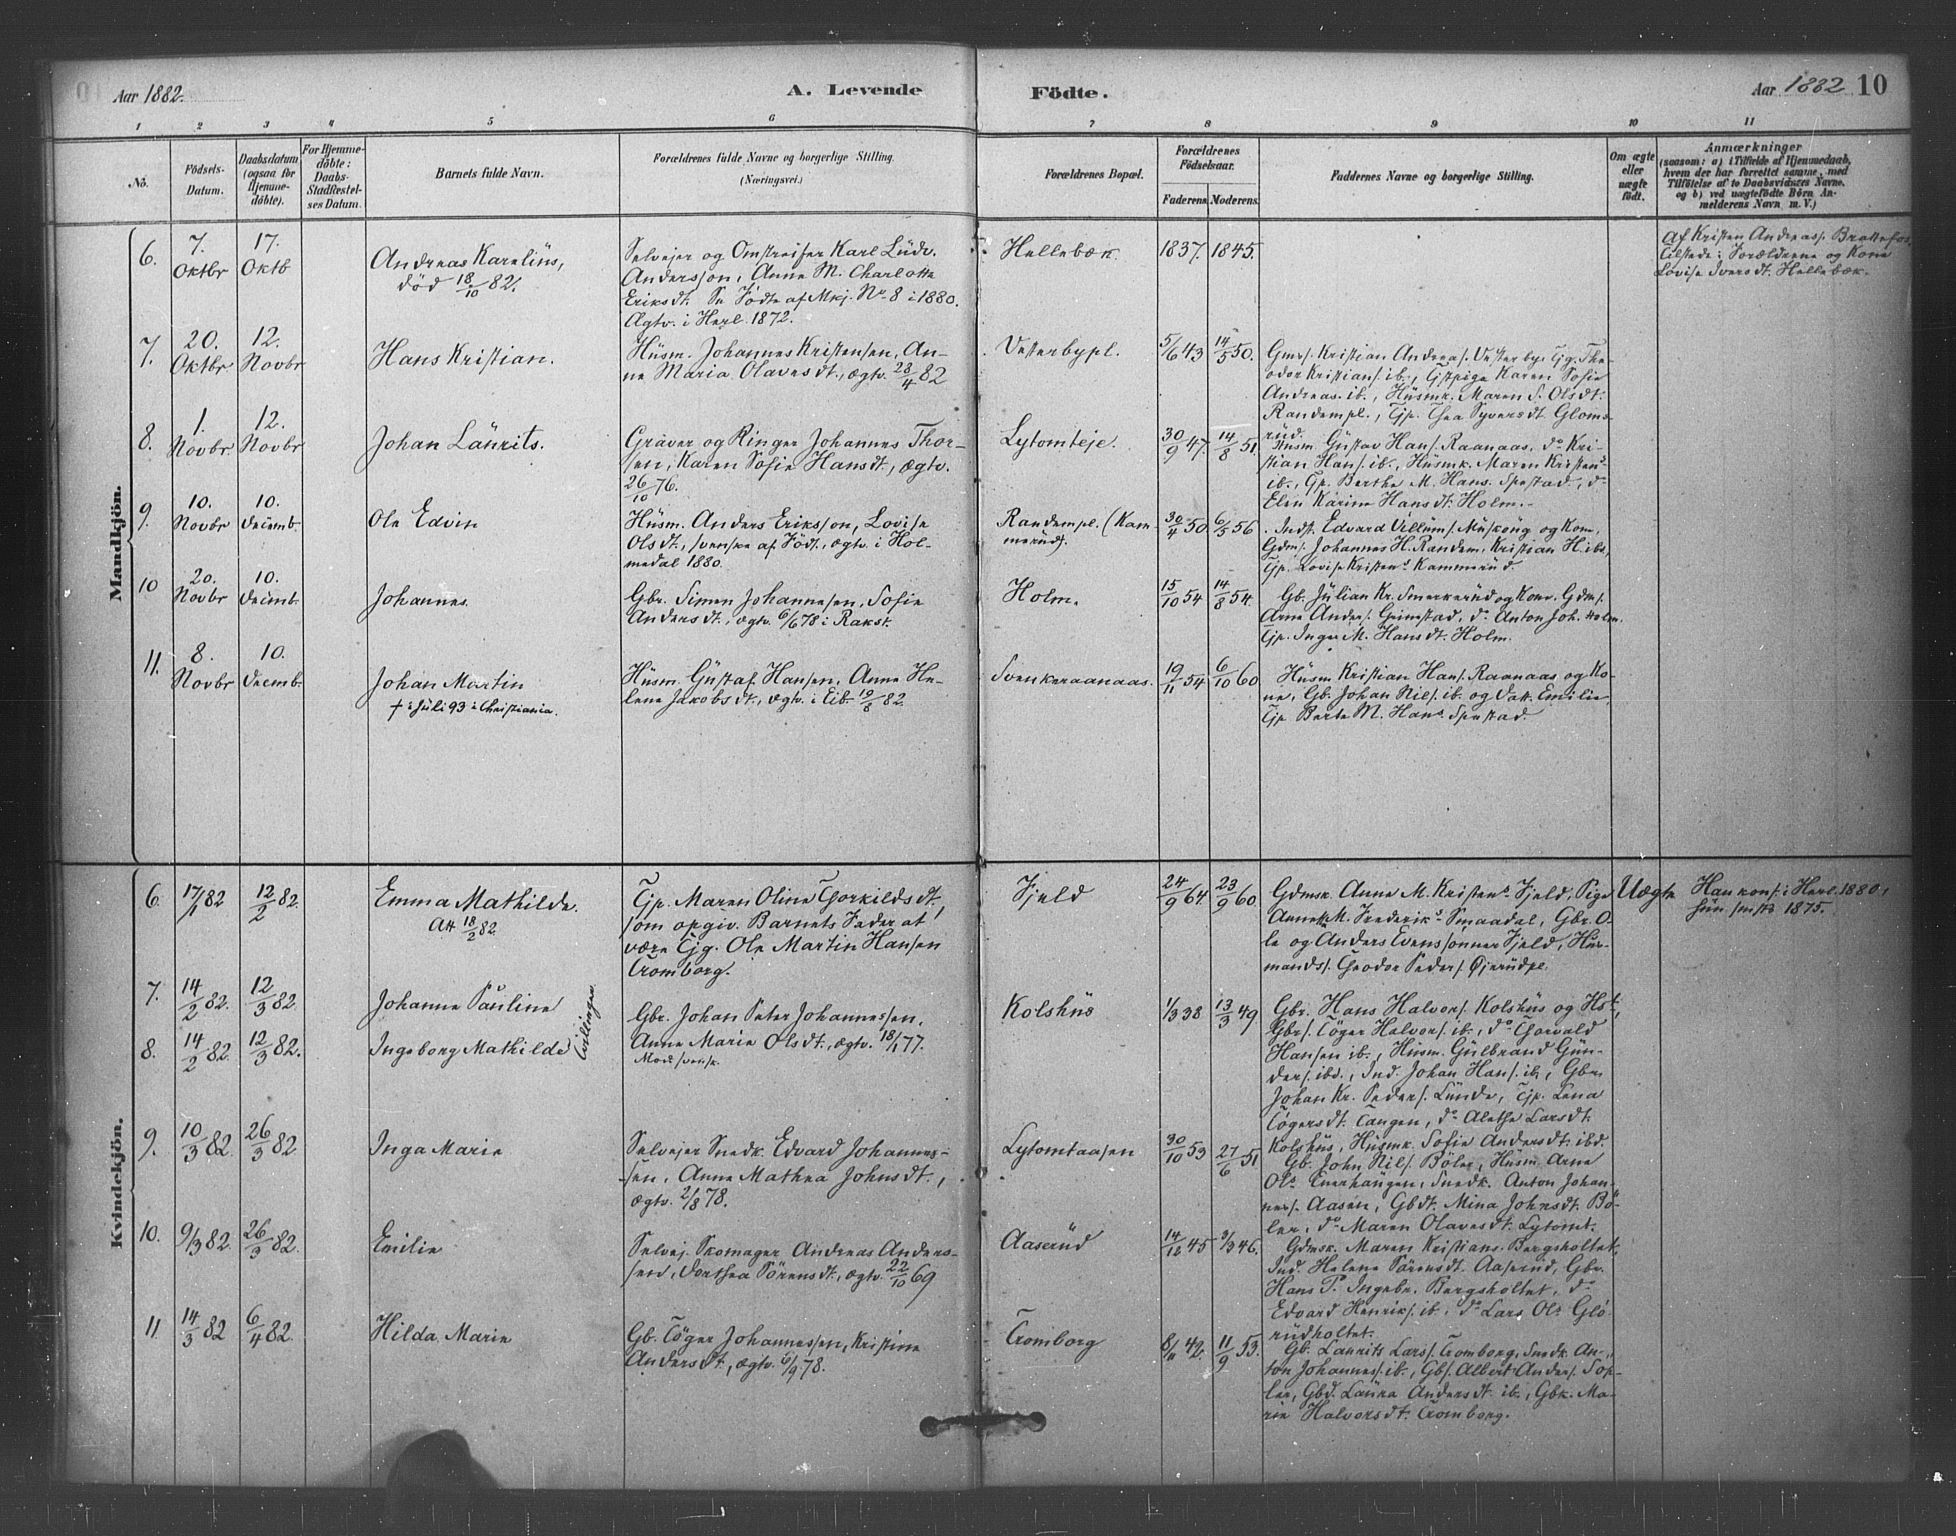 Aar 1882.
A. Levende
Födte.
Aar 1882
10
1
2
3
4
5
6
7
8
9
10
11
No.
Födsets-
Datum.
Daabsdatum
(ogsaa for
Hjemme-
döbte).
For Hjemme-
döbte:
Daabs-
Stadfæstel-
ses Datum.
Barnets fulde Navn.
Forældrenes fulde Navne og borgerlige Stilling.
(Næringsvei.)
Forældrenes Bopæl.
Forældrenes
Födselsaar.
Faderens.
Moderens.
Faddernes Navne og borgerlige Stilling.
Om ægte
eller
uægte
födt.
Anmærkninger
(saasom: a) i Tilfælde af Hjemmedaab,
hvem der har forrettet samme, med
Tilföielse af to Daabsvidners Navne,
og b) ved uægtefödte Börn An-
melderens Navn m. V.)
Mandkjön.
6.
7.
Oktbr
17.
Oktb
Andreas Karelius,
död 18/10 82.
Selvejer og Omstreifer Karl Ludv.
Anderssøn, Anne M. Charlotte
Eriksdt. Se Födte af Mkj. No 8 i 1880.
Ægtv. i Herl. 1872.
Hellebæk.
1837.
1845.
Af Kristen Andreas. Brattefos,
tilstede: Forældrene og Kone
Lovise Iversdt. Hellebæk.
7.
20.
Oktbr
12.
Novbr
Hans Kristian.
Husm. Johannes Kristensen, An-
ne Maria Olavesdt., ægtv. 23/4 82
Vesterbypl.
5/6 43
14/5 50.
Gmrs. Kristian Andreas. Vesterby, Tjg. The-
odor Kristians. ib., Tjstpige Karen Sofie
Andreas. ib., Husmk. Maren S. Olsdt.
Randempl., Tjp. Thea Syversdt. Gloms-
rud.
8.
1.
Novbr
12.
Novbr
Johan Laurits.
Graver og Ringer Johannes Thor-
sen, Karen Sofie Hansdt., ægtv.
26/10 76.
Lytomteje.
30/9 47.
14/8 51.
Husm. Gustav Hans. Raanaas, do Kri-
stian Hans. ib., Husmk. Maren Kristens
ib., Tjp. Berthe M. Hans. Spestad, do
Elen Karine Hansdt. Holm.
9.
10.
Novbr
10.
Decemb.
Ole Edvin
Husm. Anders Erikssøn, Lovise
Olsdt., svenske af Föds., ægtv. i Hol-
medal 1880.
Randempl. (Kam-
merud).
30/4 50
6/5 56
Indst. Edvard Villums. Muskoug og Kone,
Gdms. Johannes H. Randem, Kristian H. ibs.
Tjp. Lovise Kristens Kammerud.
10
20.
Novbr
10.
Decemb.
Johannes.
Gbr. Simen Johannesen, Sofie
Andersdt., ægtv. 6/6 78 i Rakst.
Holm.
15/10 54
14/8 54.
Gb. Julian Kr. Smerkerud og Kone, Gdms.
Arne Anders. Grimstad, do Anton Joh. Holm.
Tjp. Inger M. Hansdt. Holm.
11.
8.
Novbr
10.
Decemb.
Johan Martin
† i Juli 93 i Christiania.
Husm. Gustaf Hansen, Anne He-
lene Jakobsdt., ægtv. i Eib. 19/8 82.
Svenkeraanaas.
19/11 54
6/10 60
Husm. Kristian Hans. Raanaas og Ko-
ne, Gb. Johan Nils. ib. og Datt. Emilie,
Tjp. Berte M. Hans Spestad.
Kvindekjön.
6.
17/1 82
12/2 82.
Emma Mathilde.
Att 18/2 82.
Tjp. Maren Oline Thorkildsdt.,
som opgiv. Barnets Fader at
være Tjg. Ole Martin Hansen
Tromborg.
Fjeld
24/9 64
23/9 60.
Gdmsk. Anne M. Kristens Fjeld, Pige
Annek. M. Frederiks Smaadal, Gbr. O-
le og Anders Evenssønner Fjeld, Hus-
mands. Theodor Peders. Ørerudpl.
Uægte
Han konf. i Herl. 1880,
hun sidste 1875.
7.
14/2 82.
12/3 82.
Johanne Pauline
8.
14/2 82.
12/3 82.
Ingeborg Mathilde
Tvillinger
Gbr. Johan Peter Johannessen,
Anne Marie Olsdt., ægtv. 18/1 77.
Mod. svensk.
Kolshus
1/3 38
13/3 49
Gbr. Hans Halvors. Kolshus og Hst.,
Gbrs. Töger Halvors. ib., do Thorvald
Hansen ib., Husm. Gulbrand Gun-
ders. ibd., Ind. Johan Hans. ib., Gbr.
Johan Kr. Peders. Lunde, Tjp. Lena
Tögersdt. Tangen, do Alethe Larsdt.
Kolshus, Husmk. Sofie Andersdt. ibd.
9.
10/3 82
26/3 82
Inga Marie
Selvejer Snedk. Edvard Johannes-
sen, Anne Mathea Johnsdt.,
ægtv. 2/8 78.
Lytomtaasen
30/10 53
27/6 51
Gb. John Nils. Böler, Husm. Arne
Ols. Tverhaugen, Snedk. Anton Johan-
nes. Aasen, Gbdt. Mina Johnsdt. Bö-
ler, do Maren Olavesdt. Lytomt.
10.
9/3 82
26/3 82.
Emilie
Selvej. Skomager Andreas Anders-
sen, Dorthea Sörensdt., ægtv. 22/10 69
Aaserud
14/12 45
3/3 46.
Gdmsk. Maren Kristians. Bergsholtet,
Ind. Helene Sörensdt. Aaserud, Gbr.
Hans P. Ingebr. Bergsholtet, do
Edvard Henriks. ib., do Lars Ols. Glo-
rudholtet.
11
14/3 82
6/4 82
Hilda Marie
Gb. Töger Johannessen, Kristine
Andersdt., ægtv. 6/9 78.
Tromborg
8/11 42.
11/9 53.
Gb. Laurits Lars. Tromborg, Snedk. An-
ton Johannes. ib., Gbs. Albert Anders. Sop-
ler, Gbd. Laura Andersdt. ib., Gbk. Ma-
rie Halvorsdt. Tromborg.